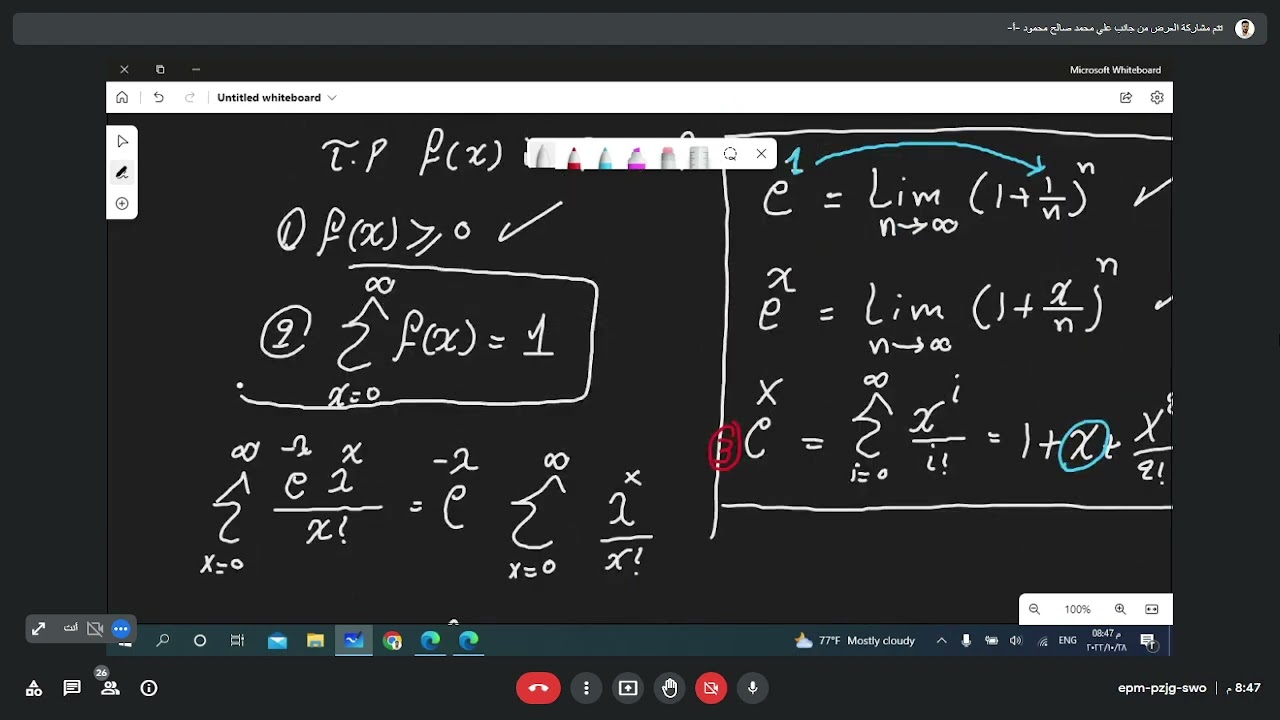 تتم مشاركة العرض من جانب علي محمد صالح محمود -أ-
Microsoft Whiteboard
Untitled whiteboard
T.P f(x)
① f(x) ≥ 0 ✓
② ∑_{x=0}^{∞} f(x) = 1
∑_{x=0}^{∞} e^{-λ} λ^x / x! = e^{-λ} ∑_{x=0}^{∞} λ^x / x!
e^1 = Lim_{n→∞} (1+1/n)^n ✓
e^x = Lim_{n→∞} (1+x/n)^n
3 e^x = ∑_{i=0}^{∞} x^i / i! = 1+x+x^2/2!
100%
أنت
77°F Mostly cloudy
ENG
08:47 م
٢٠٢٢/١٠/٢٨
26
epm-pzjg-swo | 8:47 م